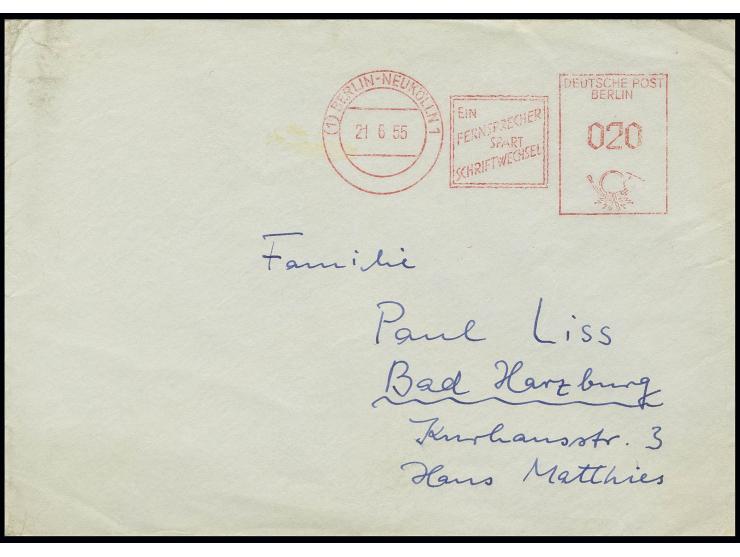 (1) BERLIN-NEUKÖLLN 1
21 6 55
EIN
FERNSPRECHER
SPART
SCHRIFTWECHSEL
DEUTSCHE POST
BERLIN
020
Familie
Paul Liss
Bad Harzburg
Kurhausstr. 3
Haus Matthies